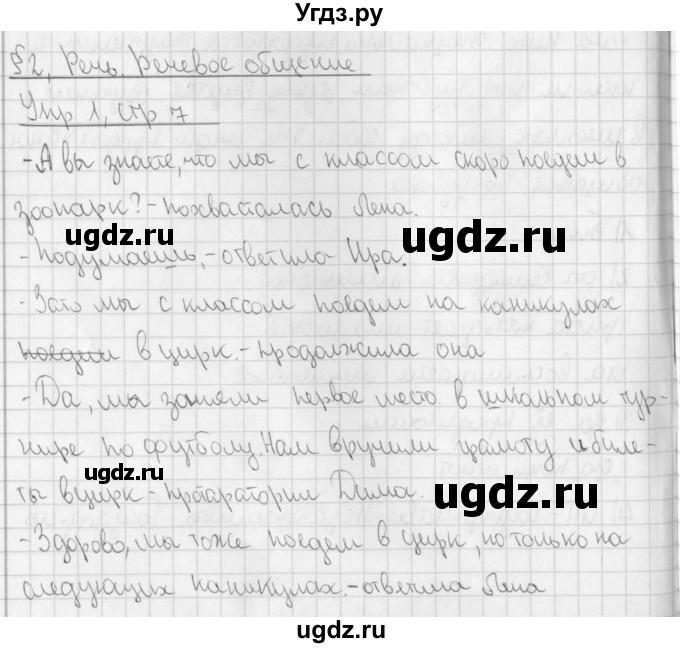 Угдз.ру
§2, Речь. Речевое общение
Упр 1, стр 7
-А вы знаете, что мы с классом скоро поедем в
зоопарк?-похвасталась Лена.
ugdz.ru
ugdz.ru
-Подумаешь,-ответила Ира.
-Зато мы с классом поедем на каникулах
поедим в цирк.-продолжила она
-Да, мы заняли первое место в школьном тур-
нире по футболу. Нам вручили грамоту и биле-
ugdz.ru
ugdz.ru
ты в цирк-протараторил Дима.
-Здорово, мы тоже поедем в цирк, но только на
следующих каникулах.-ответила Лена
ugdz.ru